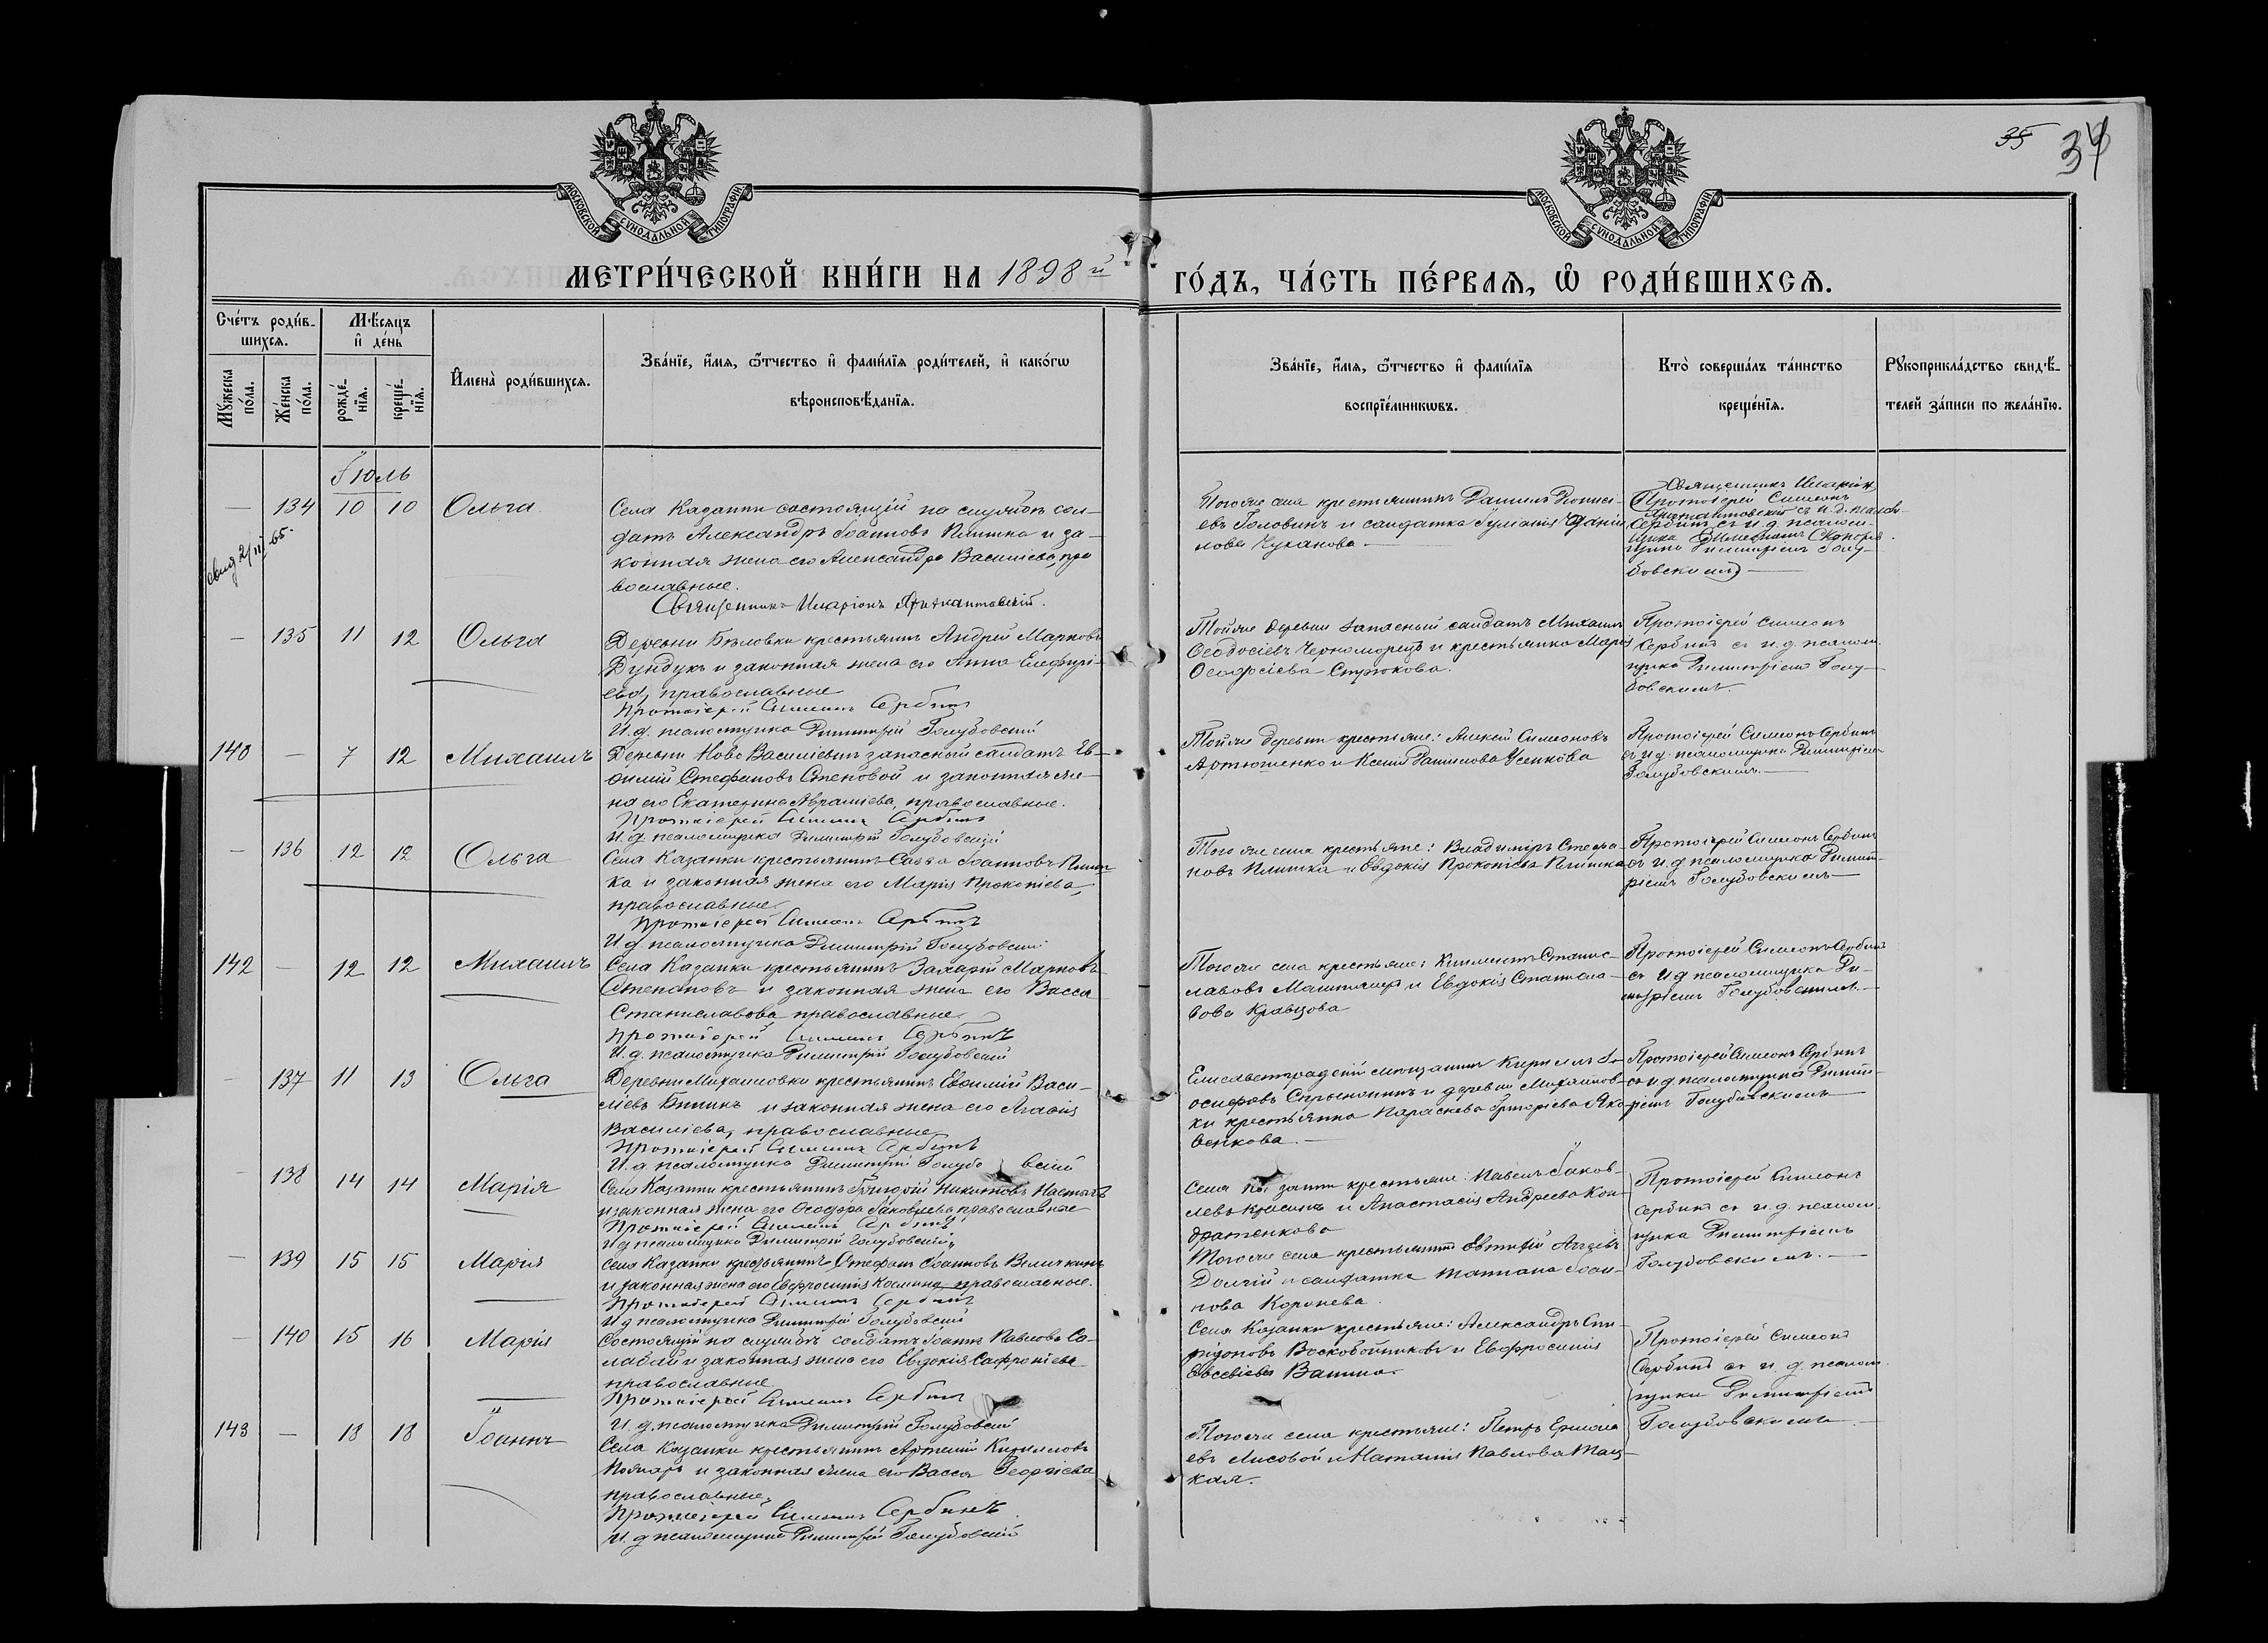 35 34
МОСКОВСКОЙ СѴНОДАЛЬНОЙ ТИПОГРАФІИ
МОСКОВСКОЙ СѴНОДАЛЬНОЙ ТИПОГРАФІИ
МЕТРИ́ЧЕСКОЙ КНИ́ГИ НА 1898 й ГО́ДЪ, ЧА́СТЬ ПЕ́РВАЯ, Ѽ РОДИ́ВШИХСѦ.
Сче́тъ роди́в-
шихсѧ.
Мꙋ́жеска по́ла.
Же́нска по́ла.
Мѣ́сѧцъ
и҆ де́нь
рожде́-
нїѧ.
креще́-
нїѧ.
И҆мена̀ роди́вшихсѧ.
Зва́нїе, и҆́мѧ, ѻ҆́тчество и҆ фами́лїѧ роди́телей, и҆ како́гѡ
вѣроисповѣ́данїѧ.
Зва́нїе, и҆́мѧ, ѻ҆́тчество и҆ фами́лїѧ
воспрїе́мникѡвъ.
Кто̀ соверша́лъ та́инство
креще́нїѧ.
Рꙋкоприкла́дство свидѣ́-
телей за́писи по жела́нїю.
Іюль
— 134 10 10 Ольга
Села Казанки состоящій на службѣ сол-
датъ Александръ Іоанновъ Плитка и за-
конная жена его Александра Васильева, пра
вославные.
Священникъ Иларіонъ
Того же села крестьянинъ Даніилъ Діонисі-
евъ Головинъ и солдатка Іуліанія Даніи
лова Чуканова
Священникъ Иларіонъ
Протоіерей Симеонъ
Сербинъ съ и. д. псалом-
щика
Димитріемъ Голу-
бовскимъ
— 135 11 12 Ольга
Деревни Бѣловки крестьянинъ Андрей Марковъ
Дундукъ и законная жена его Анна Елевфері-
ева, православные
Протоіерей Симеонъ Сербинъ
И. д. псаломщика Димитрій Голубовскій
Той же деревни запасный солдатъ Михаилъ
Ѳеодосіевъ Черноморецъ и крестьянка Марія
Ѳеодосіева Стрюкова.
Протоіерей Симеонъ
Сербинъ съ и. д. псалом-
щика Димитріемъ Голу-
бовскимъ.
140 — 7 12 Михаилъ
Деревни Ново Василіевки запасной солдатъ Ев-
ѳимій Стефановъ Степовой и законная же-
на его Екатерина Авраміева, православные.
Протоіерей Симеонъ Сербинъ
И. д. псаломщика Димитрій Голубовскій
Той же деревни крестьяне: Алексѣй Симеоновъ
Артюшенко и Ксенія Даніилова Усенкова
Протоіерей Симеонъ Сербинъ
съ и д. псаломщика Димитріемъ
Голубовскимъ.
— 136 12 12 Ольга
Села Казанки крестьянинъ Савва Іоанновъ Плит-
ка и законная жена его Марія Прокопіева,
православные.
Протоіерей Симеонъ Сербинъ
И. д. псаломщика Димитрій Голубовскій
Того же села крестьяне: Владиміръ Стефа-
новъ Плитка и Евдокія Прокопіева Плитка
Протоіерей Симеонъ Сербинъ
съ и. д. псаломщика Димит-
ріемъ Голубовскимъ
142 — 12 12 Михаилъ
Села Казанки крестьянинъ Захарій Марковъ
Степановъ и законная жена его Васса
Станиславова православные
Протоіерей Симеонъ Сербинъ
И. д. псаломщика Димитрій Голубовскій
Того же села крестьяне: Климентъ Станис-
лавовъ и Евдокія Станисла-
вова Кравцова
Протоіерей Симеонъ Сербинъ
съ и д псаломщика Ди-
митріемъ Голубовскимъ.
— 137 11 13 Ольга
Деревни Михайловки крестьянинъ Евѳимій Васи-
ліевъ и законная жена его Агаѳія
Василіева, православные
Протоіерей Симеонъ Сербинъ
И. д. псаломщика Димитрій Голубовскій
Елисаветградскій мѣщанинъ Кириллъ І-
осифовъ и деревни Михайлов-
ки крестьянка Параскева Григоріева Яко-
венкова.
Протоіерей Симеонъ Сербинъ
съ и д. псаломщика Димит-
ріемъ Голубовскимъ
— 138 14 14 Марія
Села Казанки крестьянинъ Григорій Никитовъ
и законная жена его Ѳеодора Іаковлева, православные
Протоіерей Симеонъ Сербинъ
И д псаломщика Димитрій Голубовскій
Села Казанки крестьяне: Павелъ Іаков-
левъ Красикъ и Анастасія Андреева Кон-
дратенкова
Протоіерей Симеонъ
Сербинъ съ и. д. псалом-
щика Димитріемъ
Голубовскимъ.
— 139 15 15 Марія
Села Казанки крестьянинъ Стефанъ Іоанновъ Величкинъ
и законная жена его Евфросинія Космина, православные.
Протоіерей Симеонъ Сербинъ
И д псаломщика Димитрій Голубовскій
Того же села крестьянинъ Евтихій
Долгій и солдатка Татіана Іоан-
нова Коронева.
— 140 15 16 Марія
Состоящій на службѣ солдатъ Іоаннъ Павловъ Со-
ловой и законная жена его Евдокія Софроніева
православные
Протоіерей Симеонъ Сербинъ
И. д. псаломщика Димитрій Голубовскій
Села Казанки крестьяне: Александръ Спи-
ридоновъ Воскобойниковъ и Евфросинія
Евсевіева
Протоіерей Симеонъ
Сербинъ съ и. д. псалом-
щика Димитріемъ
Голубовскимъ.
143 — 18 18 Іоаннъ
Села Казанки крестьянинъ Артемій Кирилловъ
и законная жена его Васса Георгіева
православные,
Протоіерей Симеонъ Сербинъ
И. д псаломщика Димитрій Голубовскій
Того же села крестьяне: Петръ Ермола
евъ Лисовой и Наталія Павлова Тац-
кая.